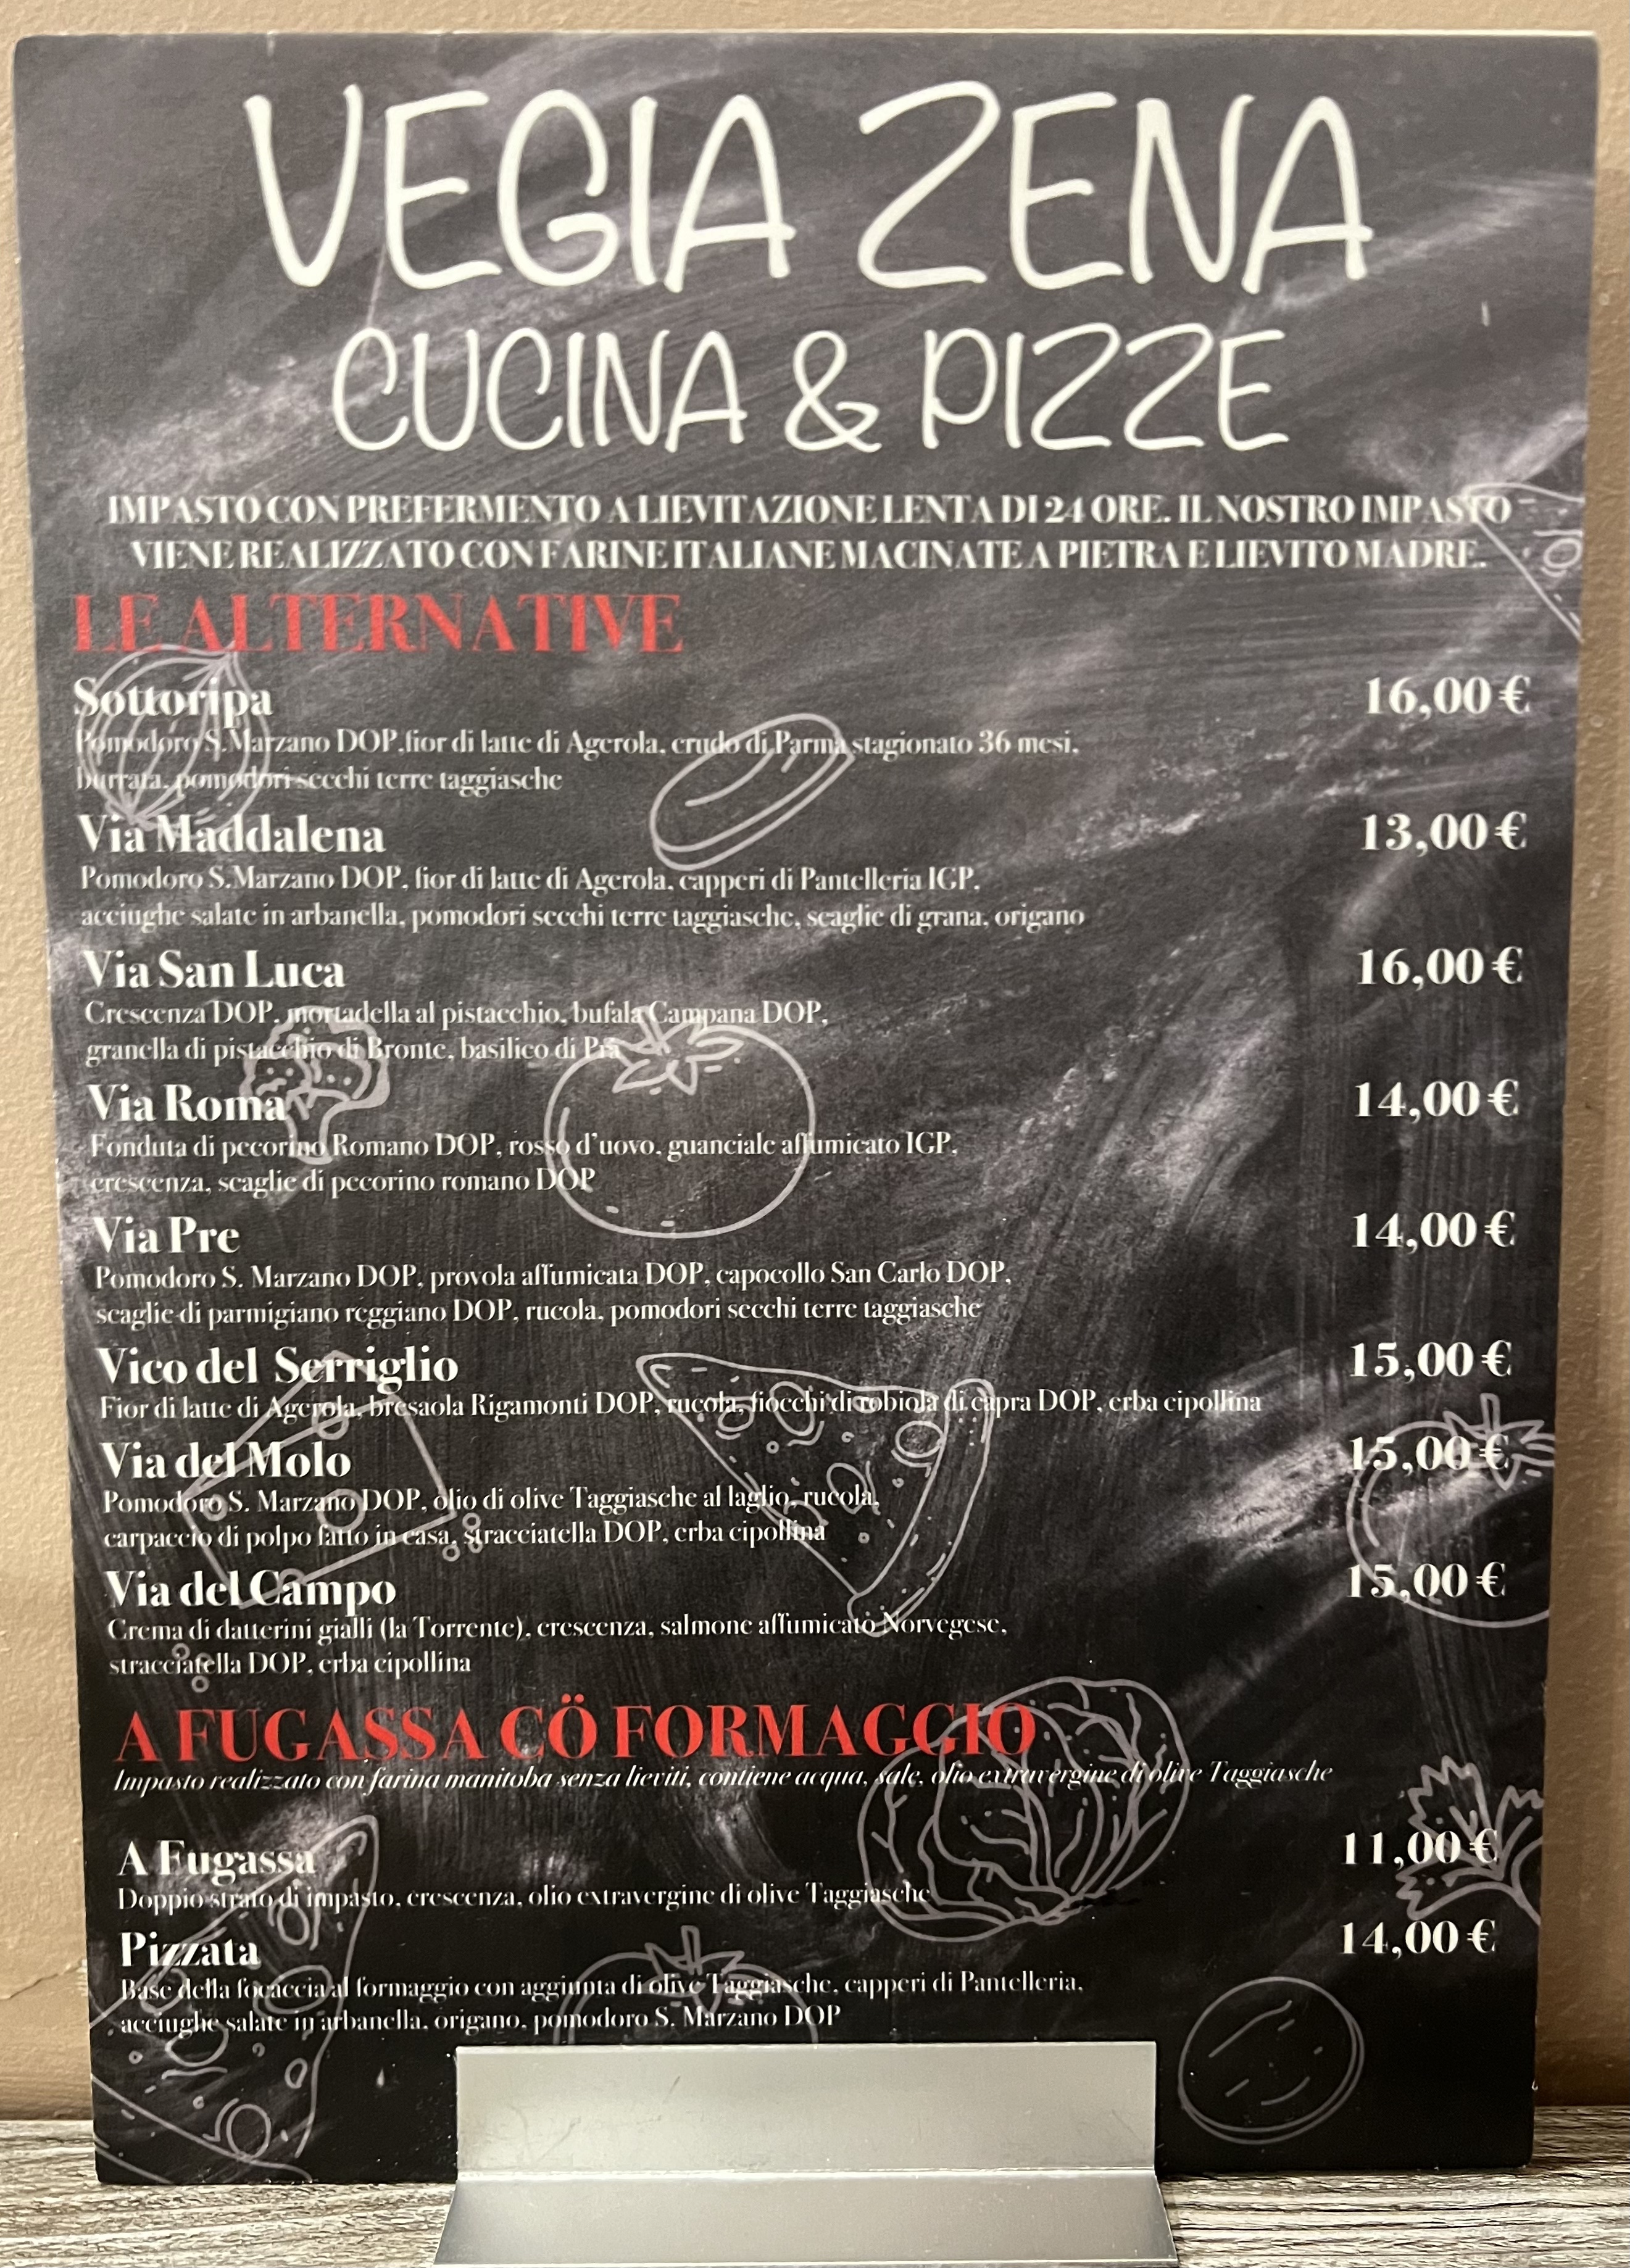 VEGIA ZENA
CUCINA & PIZZE
IMPASTO CON PREFERMENTO A LIEVITAZIONE LENTA DI 24 ORE. IL NOSTRO IMPASTO
VIENE REALIZZATO CON FARINE ITALIANE MACINATE A PIETRA E LIEVITO MADRE.
LE ALTERNATIVE
Sottoripa 16,00 €
Pomodoro S.Marzano DOP,fior di latte di Agerola, crudo di Parma stagionato 36 mesi,
burrata, pomodori secchi terre taggiasche
Via Maddalena 13,00 €
Pomodoro S.Marzano DOP, fior di latte di Agerola, capperi di Pantelleria IGP,
acciughe salate in arbanella, pomodori secchi terre taggiasche, scaglie di grana, origano
Via San Luca 16,00 €
Crescenza DOP, mortadella al pistacchio, bufala Campana DOP,
granella di pistacchio di Bronte, basilico di Prà
Via Roma 14,00 €
Fonduta di pecorino Romano DOP, rosso d'uovo, guanciale affumicato IGP,
crescenza, scaglie di pecorino romano DOP
Via Pre 14,00 €
Pomodoro S. Marzano DOP, provola affumicata DOP, capocollo San Carlo DOP,
scaglie di parmigiano reggiano DOP, rucola, pomodori secchi terre taggiasche
Vico del Serriglio 15,00 €
Fior di latte di Agerola, bresaola Rigamonti DOP, rucola, fiocchi di robiola di capra DOP, erba cipollina
Via del Molo 15,00 €
Pomodoro S. Marzano DOP, olio di olive Taggiasche al taglio, rucola,
carpaccio di polpo fatto in casa, stracciatella DOP, erba cipollina
Via del Campo 15,00 €
Crema di datterini gialli (la Torrente), crescenza, salmone affumicato Norvegese,
stracciatella DOP, erba cipollina
A FUGASSA CÖ FORMAGGIO
Impasto realizzato con farina manitoba senza lieviti, contiene acqua, sale, olio extravergine di olive Taggiasche
A Fugassa 11,00 €
Doppio strato di impasto, crescenza, olio extravergine di olive Taggiasche
Pizzata 14,00 €
Base della focaccia al formaggio con aggiunta di olive Taggiasche, capperi di Pantelleria,
acciughe salate in arbanella, origano, pomodoro S. Marzano DOP